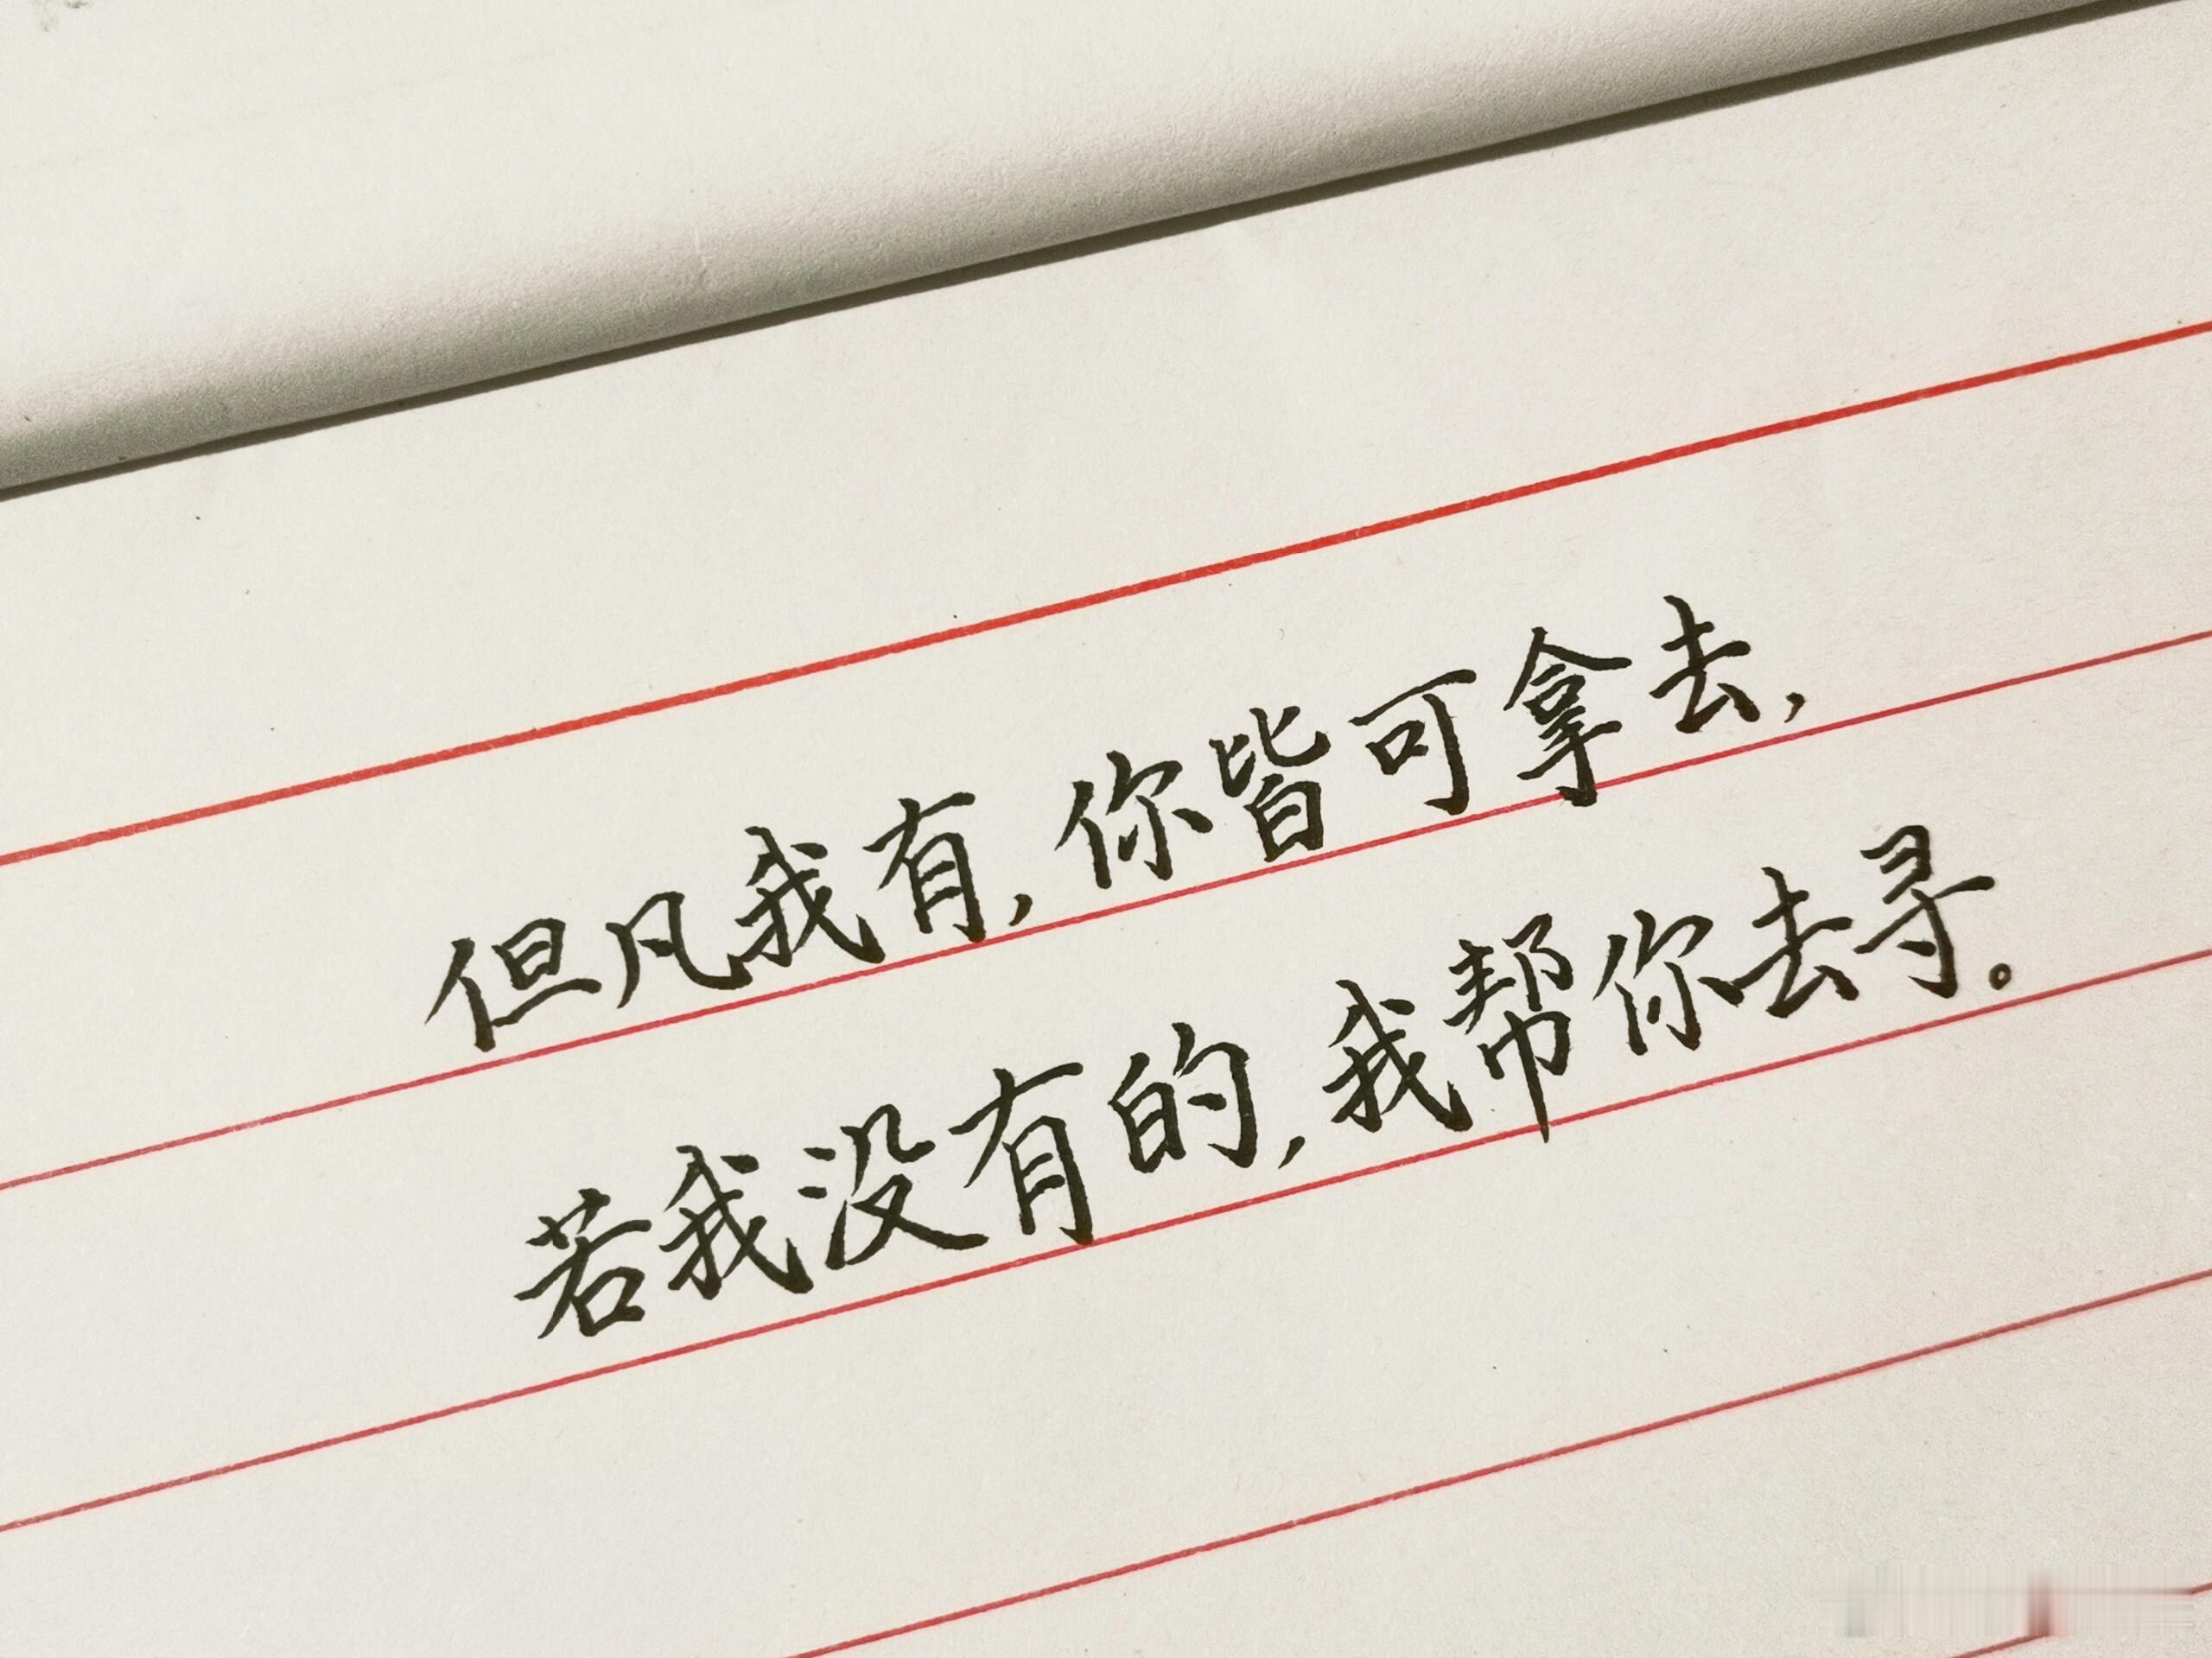 但凡我有，你皆可拿去，
若我没有的，我帮你去寻。